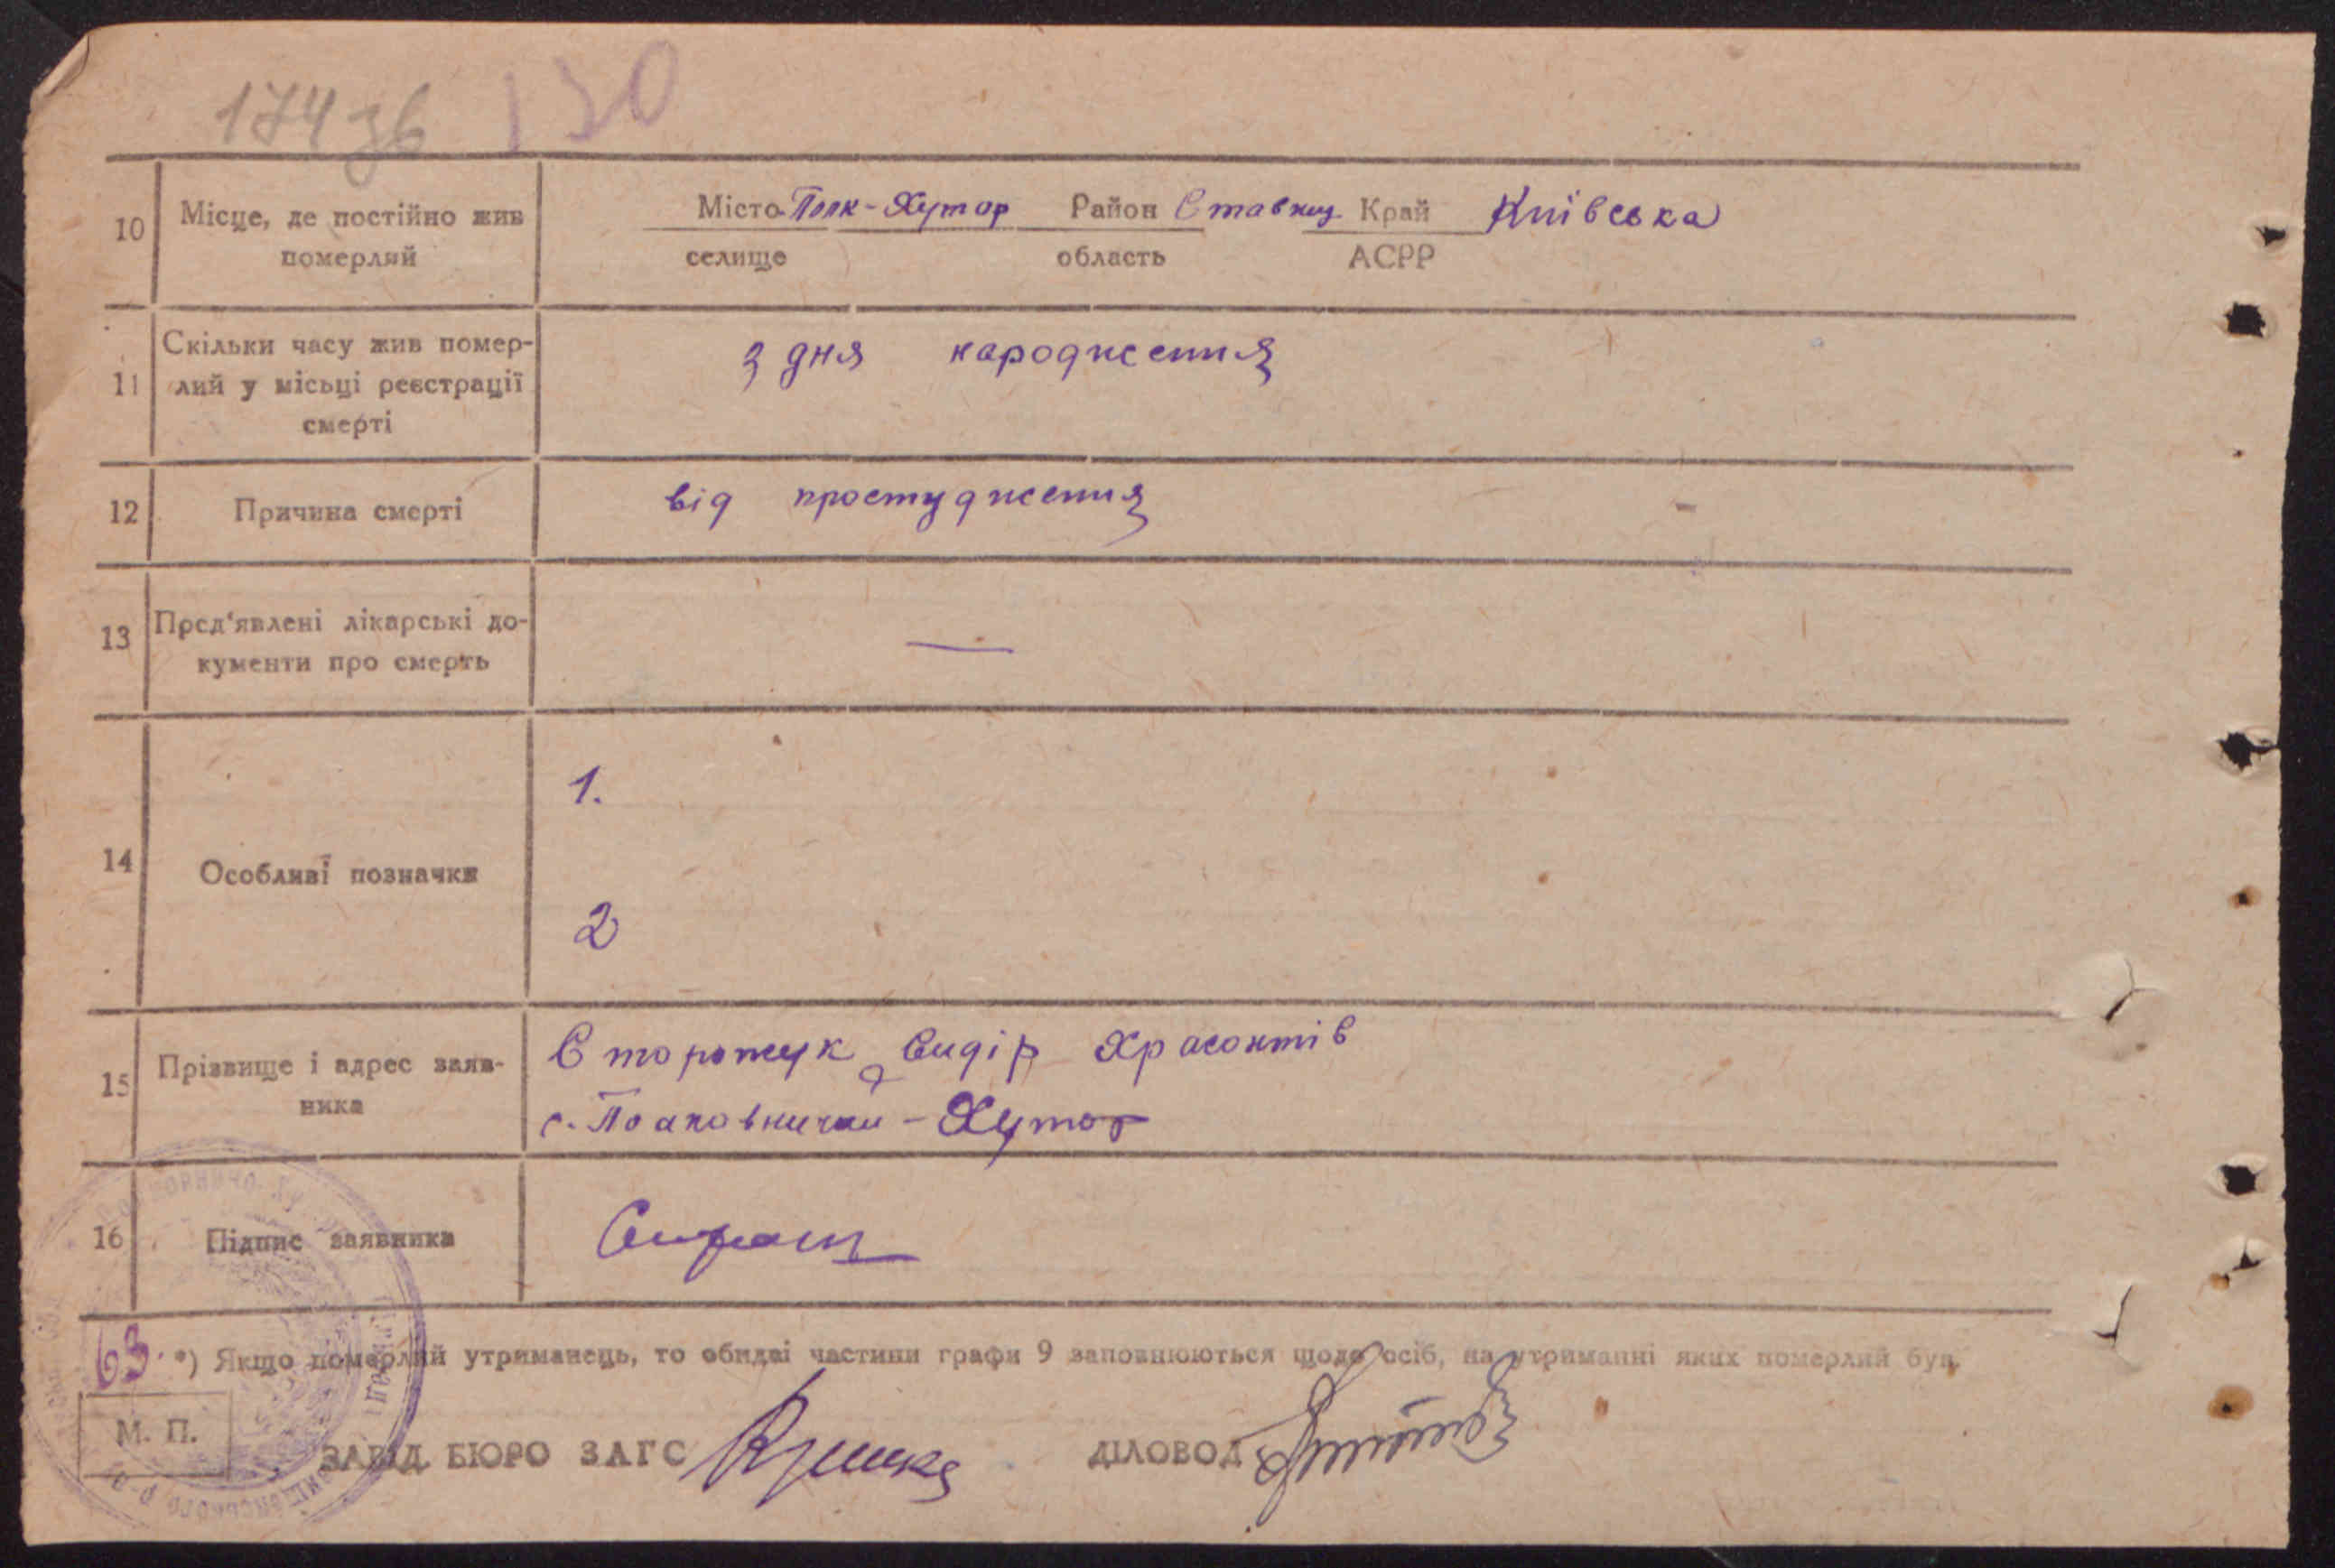 174 зв 130
10 Місце, де постійно жив померлий
Місто Полк-Хутор Район Ставищ. Край Київська
селище область АСРР
11 Скільки часу жив помер-
лий у місьці реєстрації
смерті
з дня народження
12 Причина смерті
від простудження
13 Пред'явлені лікарські до-
кументи про смерть
—
14 Особливі позначки
1.
2
15 Прізвище і адрес заяв-
ника
Сторожук Сидір Храсонтів
с. Полковничий-Хутор
16 Підпис заявника
63. *) Якщо померлий утриманець, то обидві частини графи 9 заповнюються щодо осіб, на утриманні яких померлий був.
М. П.
ЗАВІД. БЮРО ЗАГС
ДІЛОВОД